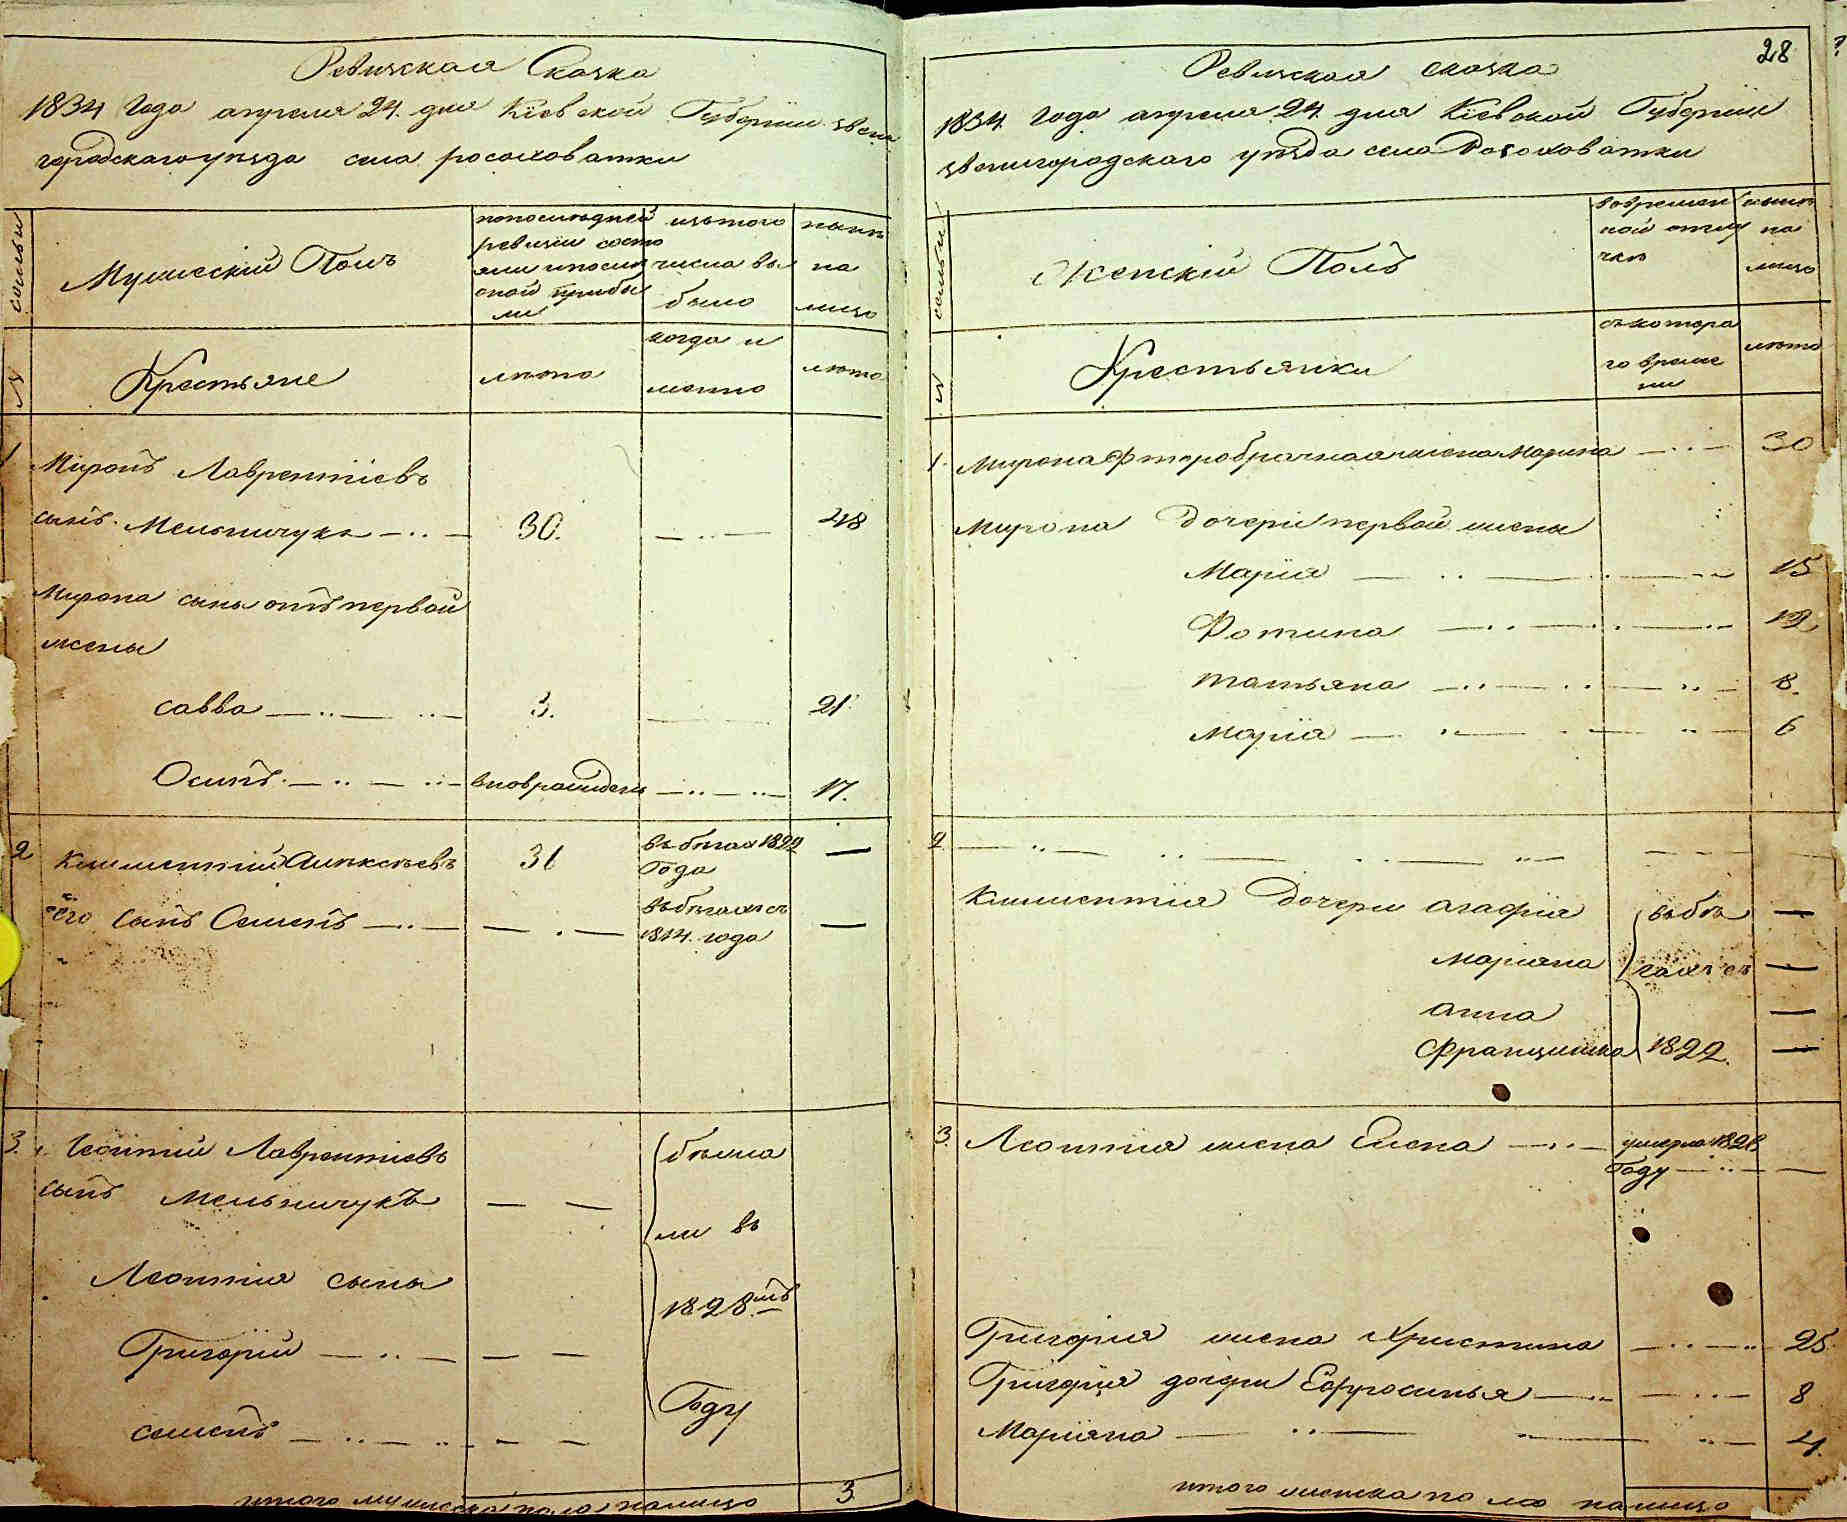 Ревизская Сказка
1834 Года апреля 24. дня Кіевской Губерніи звени
городскаго уезда села росоховатки
семьи
Мужескій Полъ
попоследней
ревизіи состо
яли ипосле
оной прибы
ли
изътого
числа вы
было
ныне
на
лицо
N
Крестьяне
лета
когда и
менно
лета
1 Миронъ Лаврентіевъ
сынъ Мельничукъ 30. 48
Мирона сыны отъ первой
жены
савва 3. 21
Осипъ вноврожденъ 17.
2 Климентій Алексеевъ 31 въ бегах 1822 Года —
Его сынъ Семенъ — въ бегахъ съ 1814. года —
3. Леонтій Лаврентіевъ
сынъ Мельничукъ — —
Леонтія сыны
Григорій — —
семенъ — —
бежа
ли въ
1828.мъ
Году
итого мужеска пола налицо 3
28
Ревизская сказка
1834. Года апреля 24. дня Кіевской Губерніи
звенигородскаго уезда села Росоховатки
семьи
Женскій Полъ
вовремен
ной отлу
чке
ныне
на
лицо
N
Крестьянки
съкотора
го време
ни
лета
1. Мирона фторобрачная жена Марина 30
Мирона дочери первой жены
Марія 15
Фотина 12
татьяна 8.
марія 6
2
Климентія дочери агафія —
Маріяна —
анна —
Францишка —
въ бе
гахъ съ
1822.
3. Леонтія жена Елена умерла 1828 Году —
Григорія жена Христина 25
Григорія дочери Ефросинья 8
Маріяна 4.
итого женска пола налицо